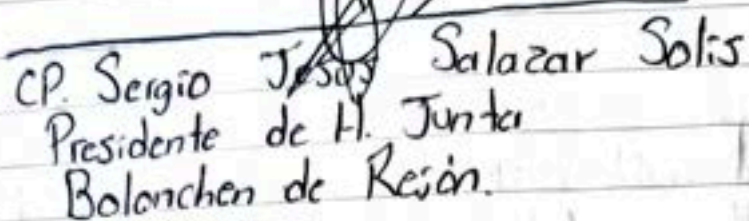 CP. Sergio Jesus Salazar Solis
Presidente de H. Junta
Bolonchen de Rejón.